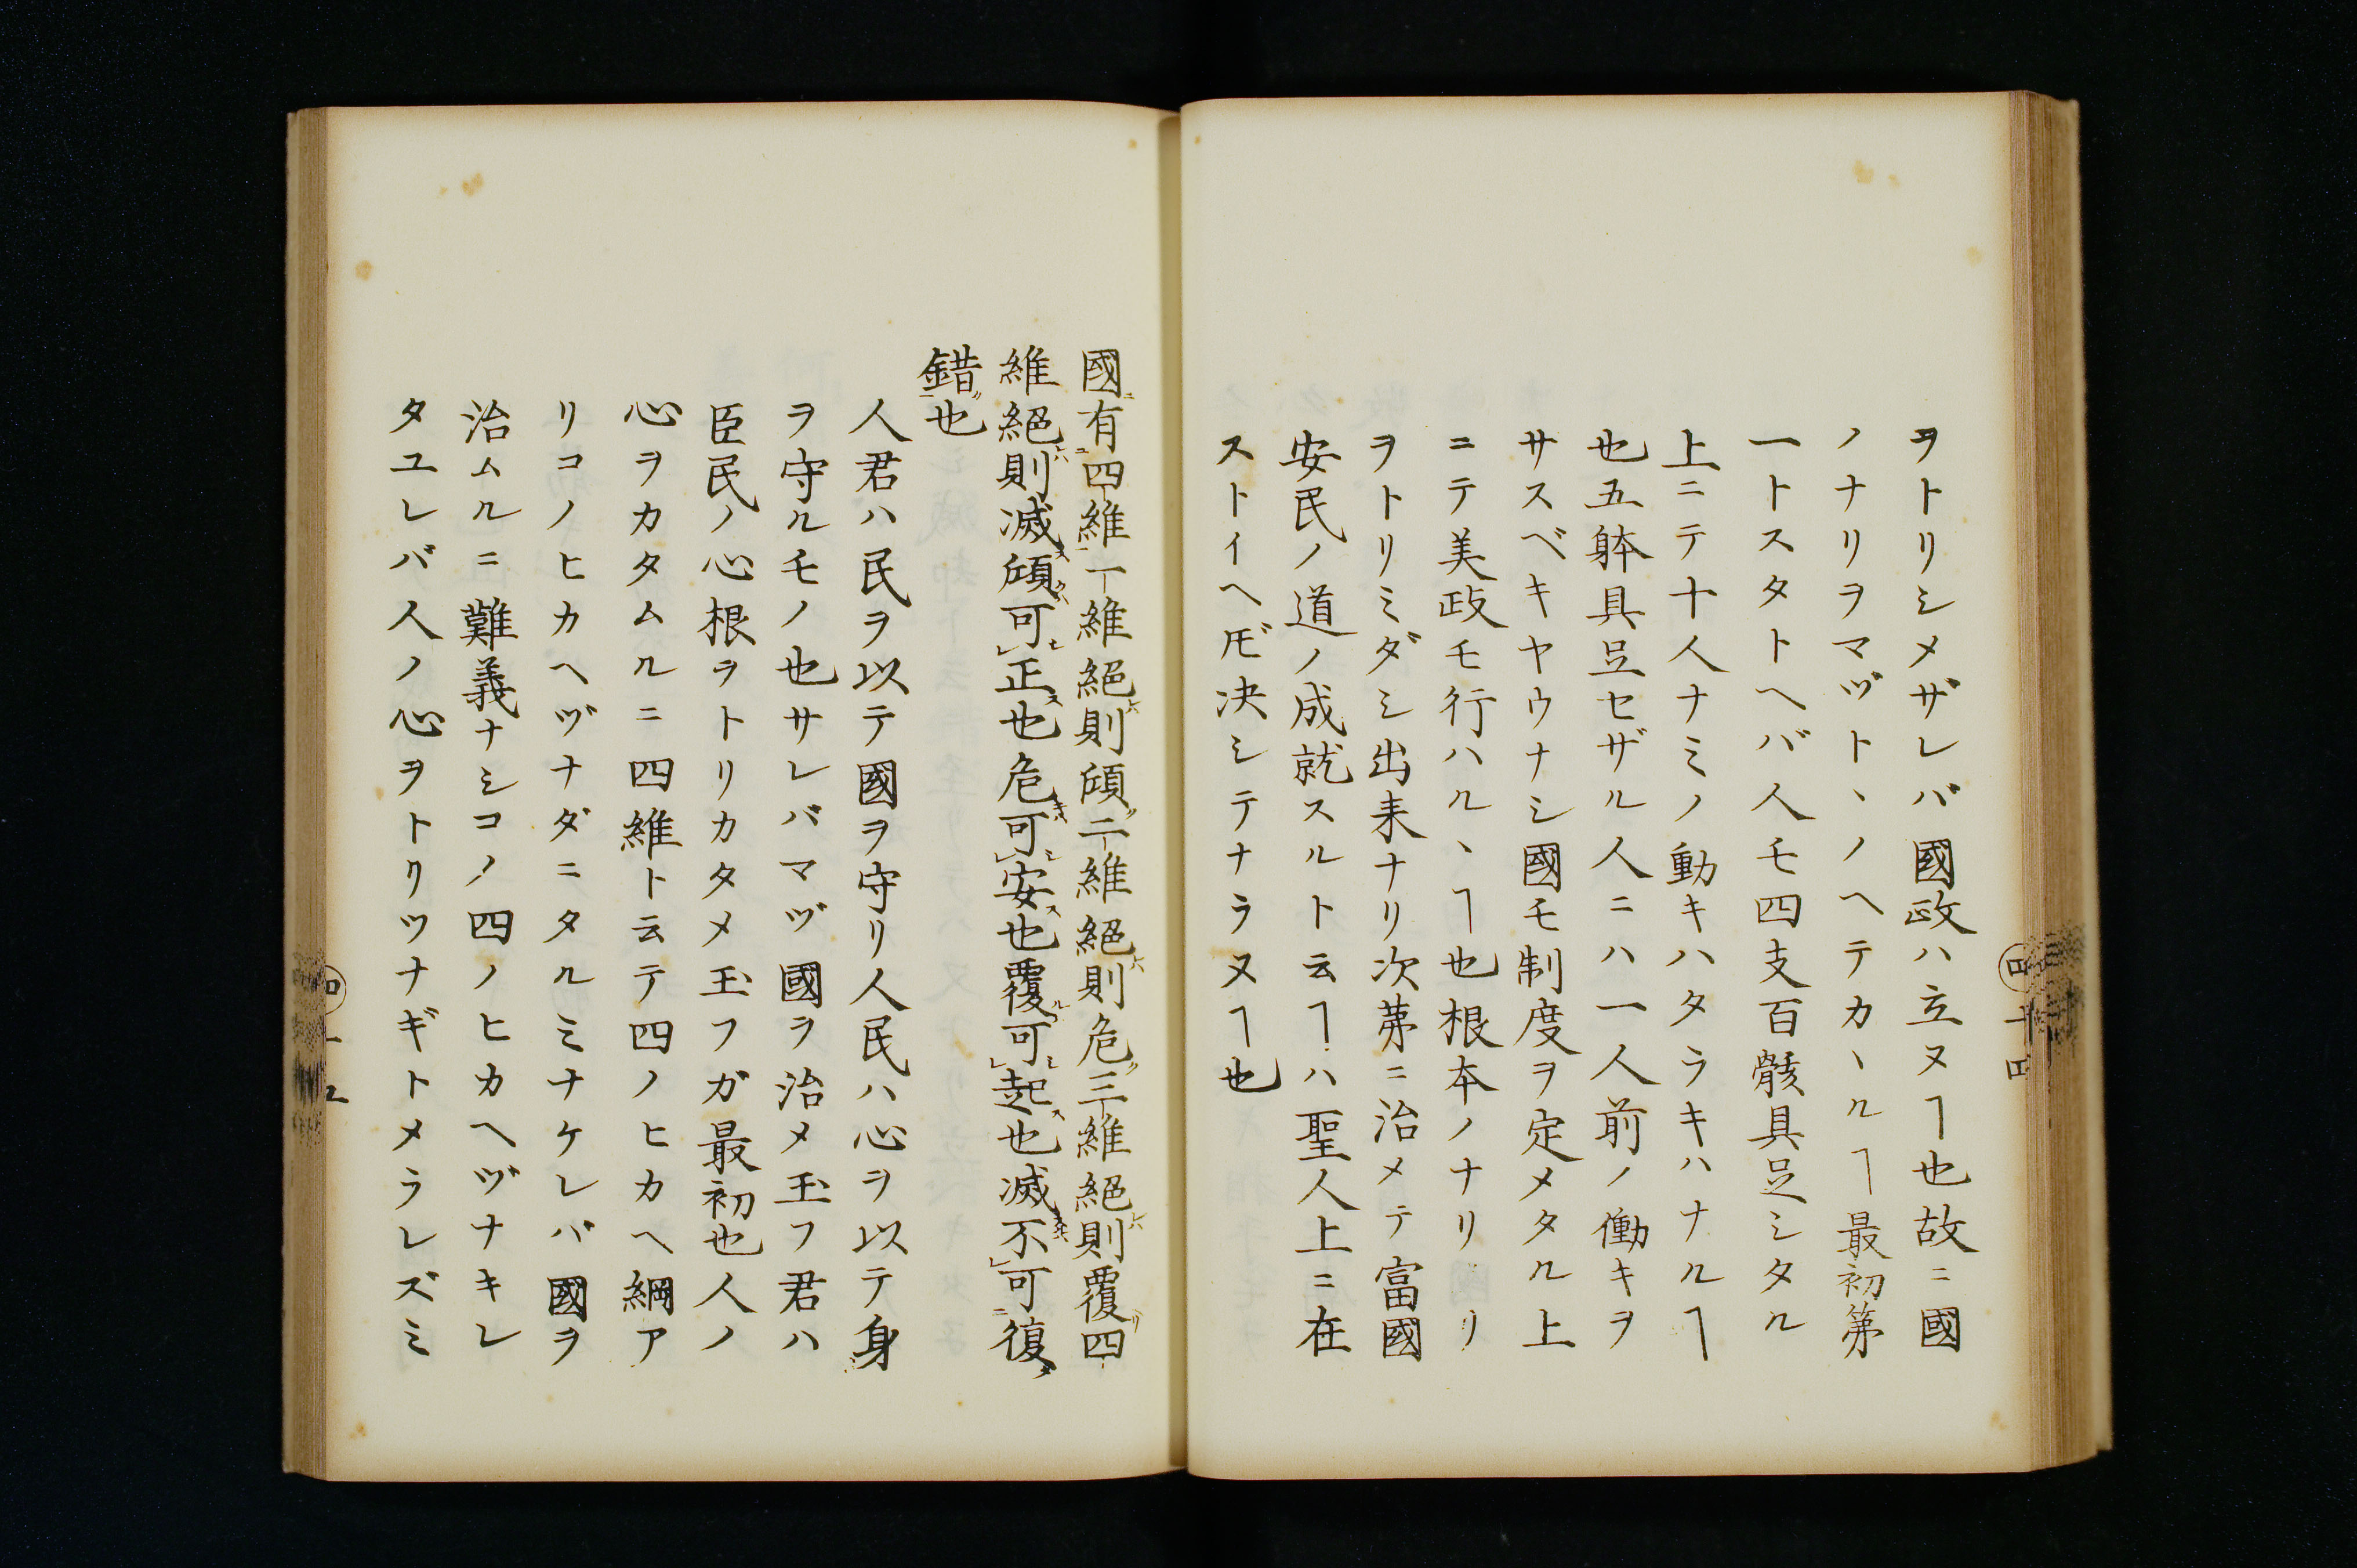 ヲトリシメザレバ國政ハ立ヌヿ也故ニ國
ノナリヲマヅトヽノヘテカヽルヿ最初第
一トスタトヘバ人モ四支百骸具足シタル
上ニテ十人ナミノ動キハタラキハナルヿ
也五躰具足セザル人ニハ一人前ノ働キヲ
サスベキヤウナシ國モ制度ヲ定メタル上
ニテ美政モ行ハルヽヿ也根本ノナリリ
ヲトリミダシ出来ナリ次苐ニ治メテ富國
安民ノ道ノ成就スルト云ヿハ聖人上ニ在
ストイヘ𪜈決シテナラヌヿ也
國有四維一維絕則傾二維絕則危三維絕則覆四
維絕則滅傾可正也危可安也覆可起也滅不可復
錯也
人君ハ民ヲ以テ國ヲ守リ人民ハ心ヲ以テ身
ヲ守ルモノ也サレバマヅ國ヲ治メ玉フ君ハ
臣民ノ心根ヲトリカタメ玉フガ最初也人ノ
心ヲカタムルニ四維ト云テ四ノヒカヘ綱ア
リコノヒカヘヅナダニタルミナケレバ國ヲ
治ムルニ難義ナシコノ四ノヒカヘヅナキレ
タユレバ人ノ心ヲトリツナギトメラレズミ